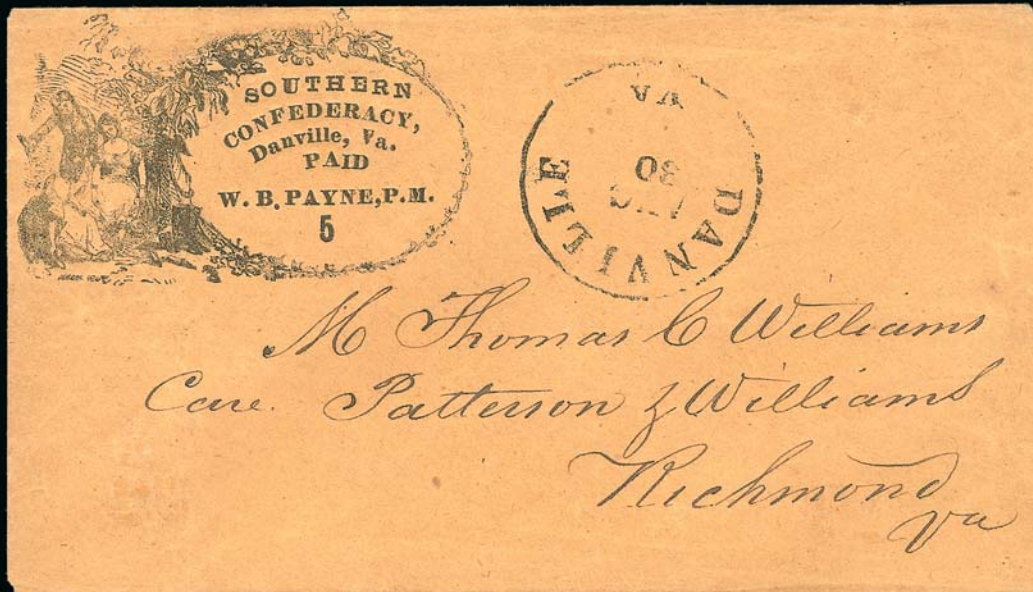 SOUTHERN
CONFEDERACY,
Danville, Va.
PAID
W. B. PAYNE, P.M.
5
DANVILLE
VA
30
M Thomas C Williams
Care Patterson & Williams
Richmond
Va